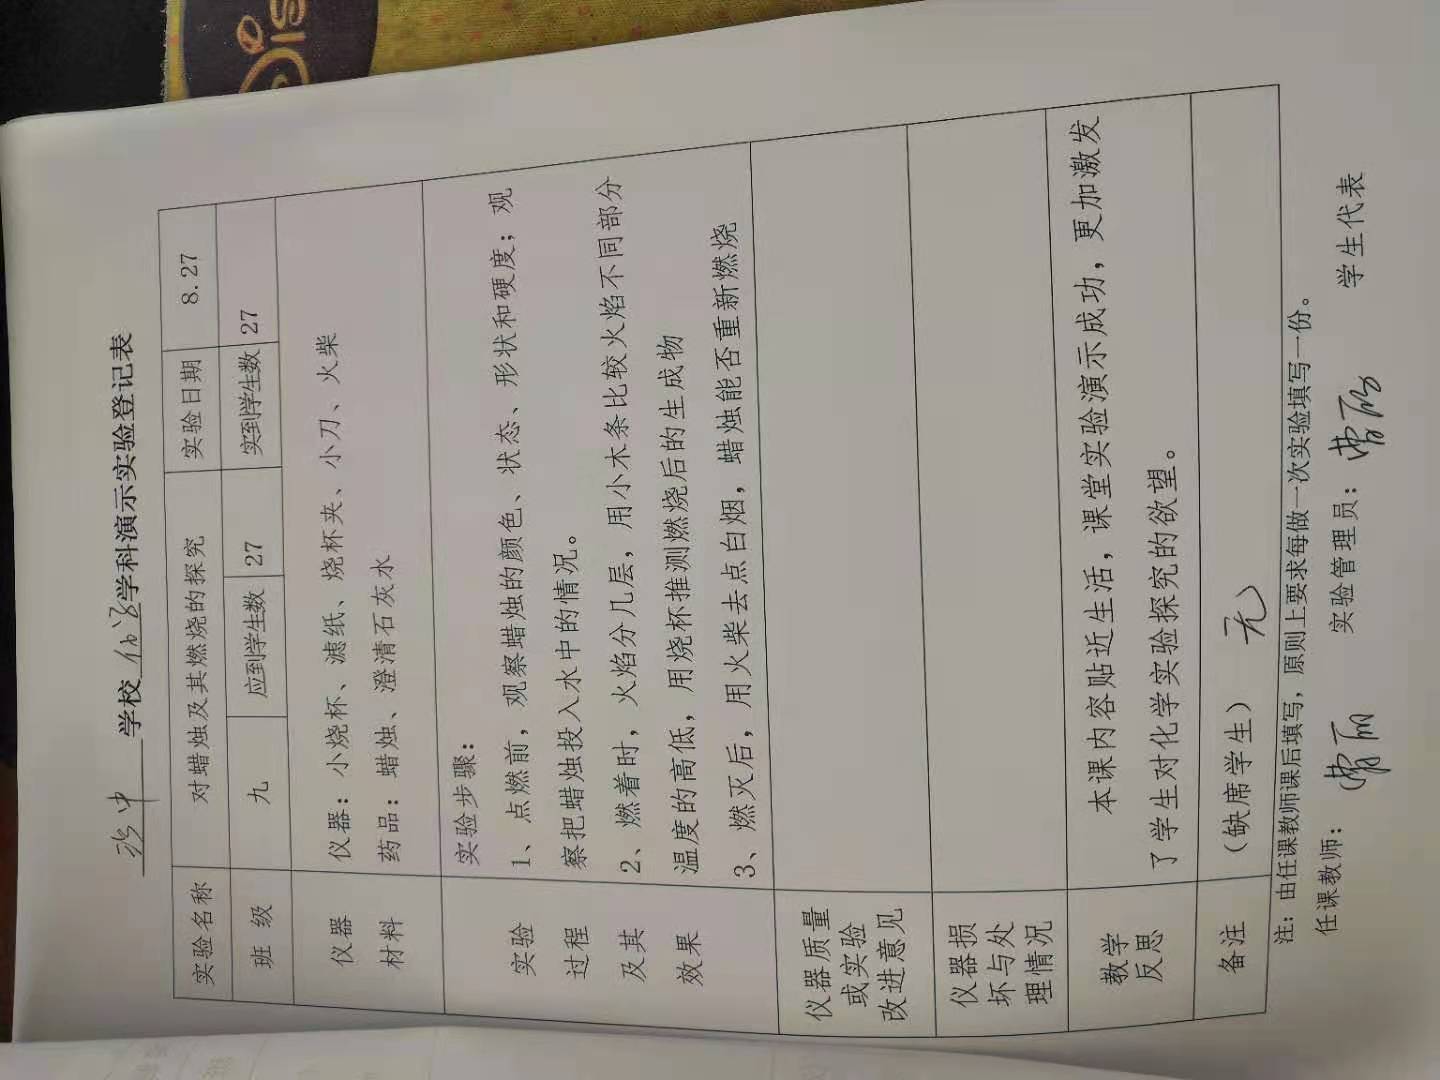 学校 化学 学科演示实验登记表
实验名称 对蜡烛及其燃烧的探究 实验日期 8.27
班 级 九 应到学生数 27 实到学生数 27
仪器
材料
仪器：小烧杯、滤纸、烧杯夹、小刀、火柴
药品：蜡烛、澄清石灰水
实验
过程
及其
效果
实验步骤：
1、点燃前，观察蜡烛的颜色、状态、形状和硬度；观
察把蜡烛投入水中的情况。
2、燃着时，火焰分几层，用小木条比较火焰不同部分
温度的高低，用烧杯推测燃烧后的生成物
3、燃灭后，用火柴去点白烟，蜡烛能否重新燃烧
仪器质量
或实验
改进意见
仪器损
坏与处
理情况
教学
反思
本课内容贴近生活，课堂实验演示成功，更加激发
了学生对化学实验探究的欲望。
备注 （缺席学生） 无
注：由任课教师课后填写，原则上要求每做一次实验填写一份。
任课教师： 曹丽 实验管理员： 曹丽 学生代表